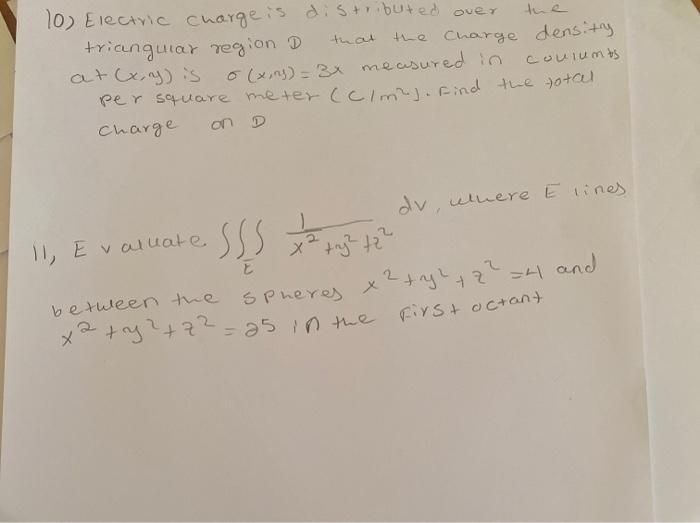 10) Electric charge is distributed over the
triangular region D that the charge density
at (x,y) is σ(x,y) = 3x measured in coulumbs
per square meter (C/m²). Find the total
charge on D
11, Evaluate ∭_E 1/(x²+y²+z²) dv, where E lines
between the spheres x²+y²+z²=4 and
x²+y²+z²=25 in the first octant